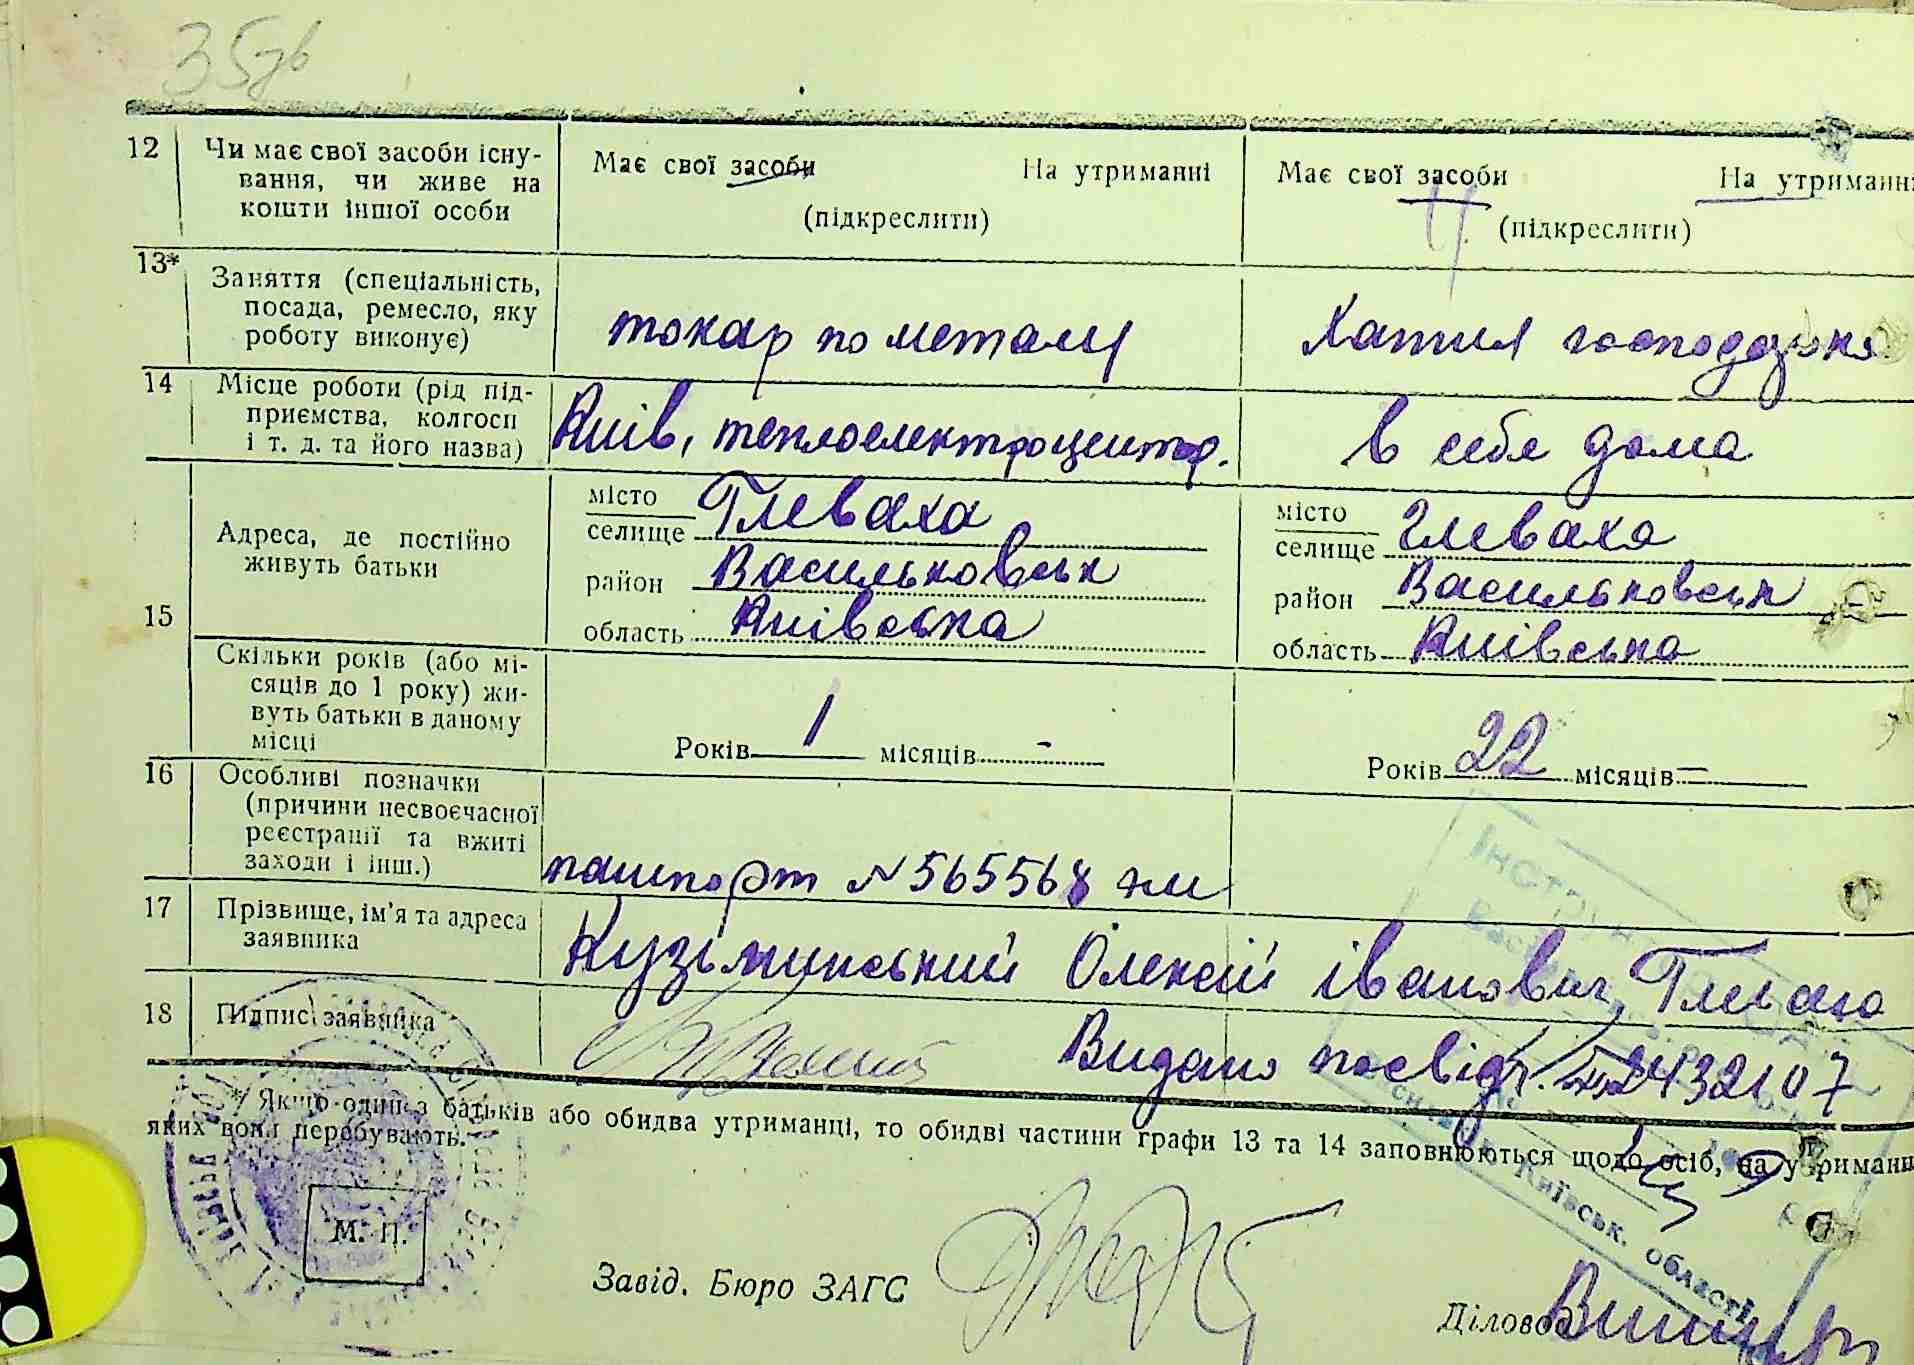 35зв
12 Чи має свої засоби існу-
вання, чи живе на
кошти іншої особи
Має свої засоби На утриманні
(підкреслити)
Має свої засоби На утриманні
(підкреслити)
13* Заняття (спеціальність,
посада, ремесло, яку
роботу виконує)
токар по металу
Хатня господарка
14 Місце роботи (рід під-
приємства, колгосп
і т. д. та його назва)
Київ, теплоелектроцентр.
в себе дома
15 Адреса, де постійно
живуть батьки
місто
селище Глеваха
район Васильковськ
область Київська
місто
селище Глеваха
район Васильковськ
область Київська
Скільки років (або мі-
сяців до 1 року) жи-
вуть батьки в даному
місці
Років 1 місяців -
Років 22 місяців -
16 Особливі позначки
(причини несвоєчасної
реєстрації та вжиті
заходи і інш.)
пашпорт № 565568
17 Прізвище, ім'я та адреса
заявника
Кузьминський Олексій Іванович,
18 Підпис заявника
Видано посвідч. 2432107
*/ Якщо один з батьків або обидва утриманці, то обидві частини графи 13 та 14 заповнюються щодо осіб, на утриманн
яких вони перебувають.
М. П.
Завід. Бюро ЗАГС
Діловод
Київськ. області